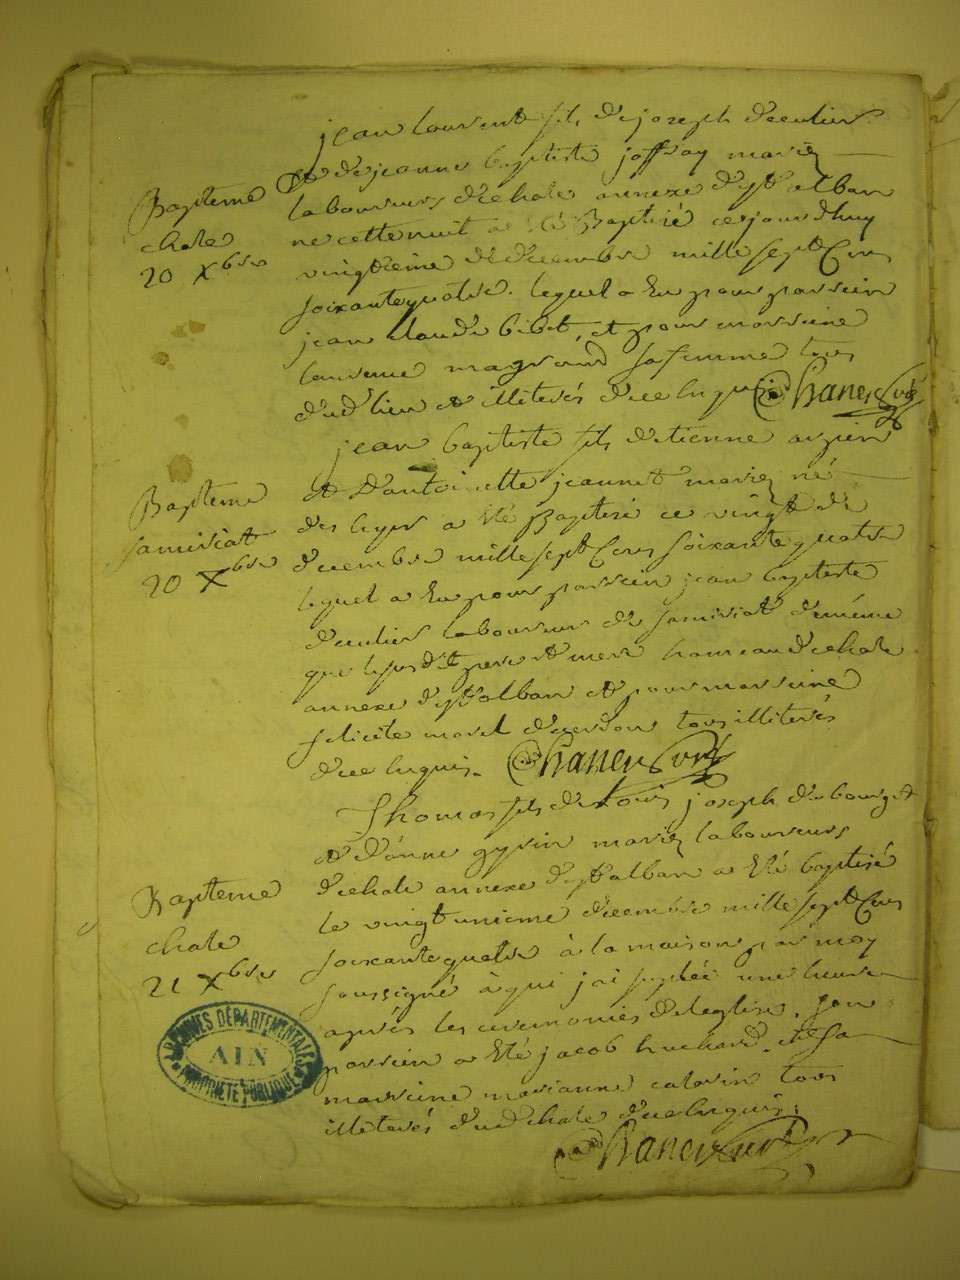 jean laurent fils de joseph deculier
Bapteme
chale
20 Xbre
et de jeanne baptiste joffray mariez
laboureurs de chale annexe de st alban
né cette nuit a été Baptisé ce jourdhuy
vingtieme de decembre mille sept Cens
soixante quatre. lequel a eu pour parrein
jean claude bibet, et pour marreine
laurence magnand sa femme tous
dud lieu et illiterés de ce enquis Chanel curé
jean baptiste fils detienne
Bapteme
samiriat
20 Xbre
et dantoinette jeannet mariez né
des hyer a été Baptisé ce vingt de
decembre mille sept Cens soixante quatre
lequel a eu pour parrein jean baptiste
deculier laboureur de samiriat de même
que lesdt pere et mere hameau de chale
annexe de st alban et pour marreine
felicite morel decerdon tous illiterés
de ce enquis. curé
Thomas fils de Louis joseph du bourget
Bapteme
chale
21 Xbre
et d'anne mariez laboureurs
de chale annexe de st alban a été baptisé
le vingt unieme decembre mille sept Cens
soixante quatre à la maison par moy
soussigné à qui j'ai supléé une heure
après les ceremonies de leglise. son
parrein a été jacob huchard. et sa
marreine marianne calarin tous
illiterés dud chale de ce enquis.
curé
ARCHIVES DÉPARTEMENTALES
AIN
PROPRIÉTÉ PUBLIQUE